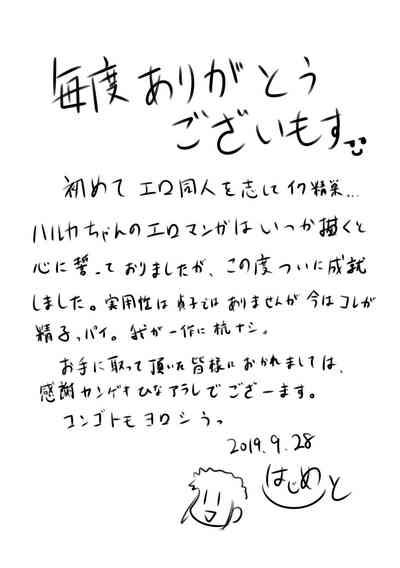 毎度ありがとう
ございもす
初めてエロ同人を志して行精巣...
ハルカちゃんのエロマンガはいつか描くと
心に誓っておりましたが、この度ついに成就
しました。実用性は貞子ではありませんが今はコレが
精子っパイ。我が一作に杭ナシ。
お手に取って頂いた皆様におかれましては、
感謝カンゲキひなアラレでございます。
コンゴトモヨロシうっ
2019.9.28
はじめと